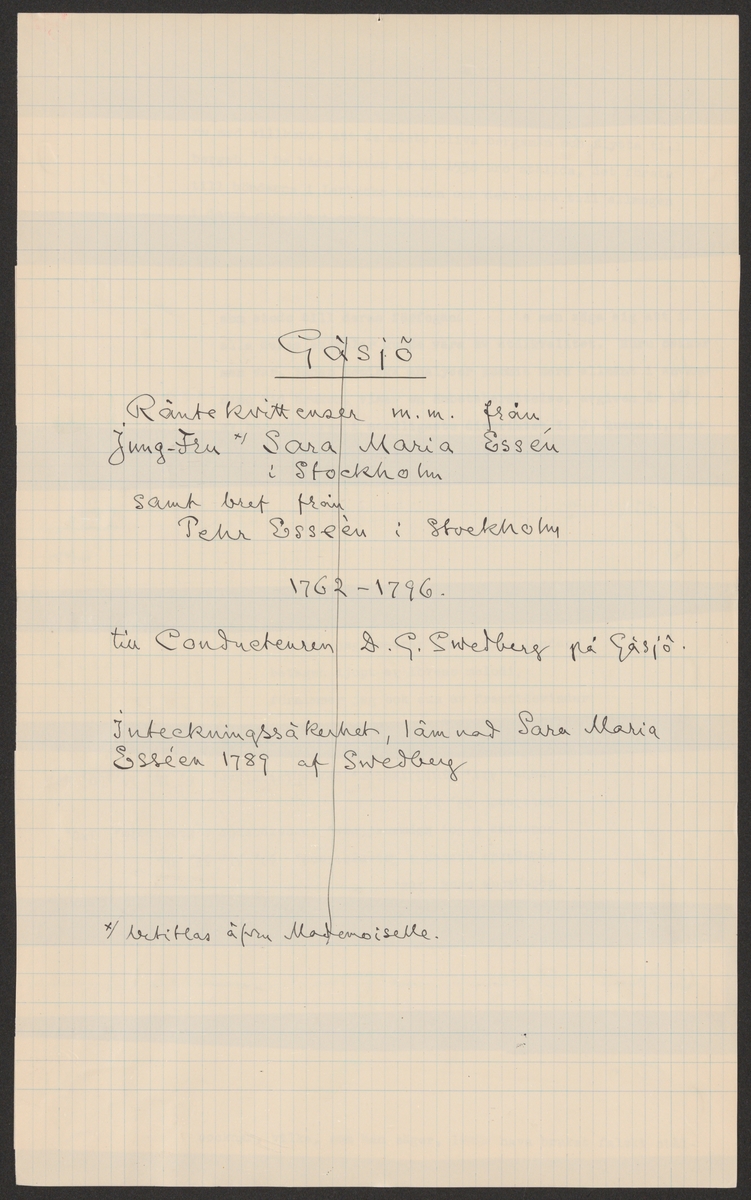 Gäsjö
Räntekvittenser m.m. från
Jung-Fru x/ Sara Maria Esseń
i Stockholm
samt bref från
Pehr Esseèn i Stockholm
1762-1796.
till Conducteuren D. G. Swedberg på Gäsjö.
Inteckningssäkerhet, lämnad Sara Maria
Esséen 1789 af Swedberg
x/ betitlas äfven Mademoiselle.